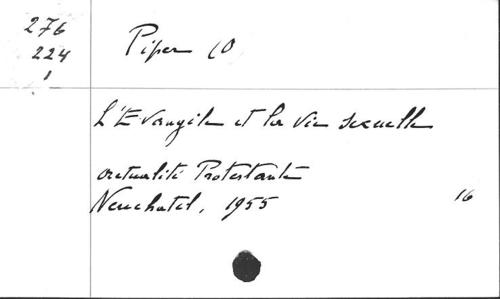 276
224
1
Piper (O
L'Evangile et la vie sexuelle
actualité Protestante
Neuchatel, 1955
16